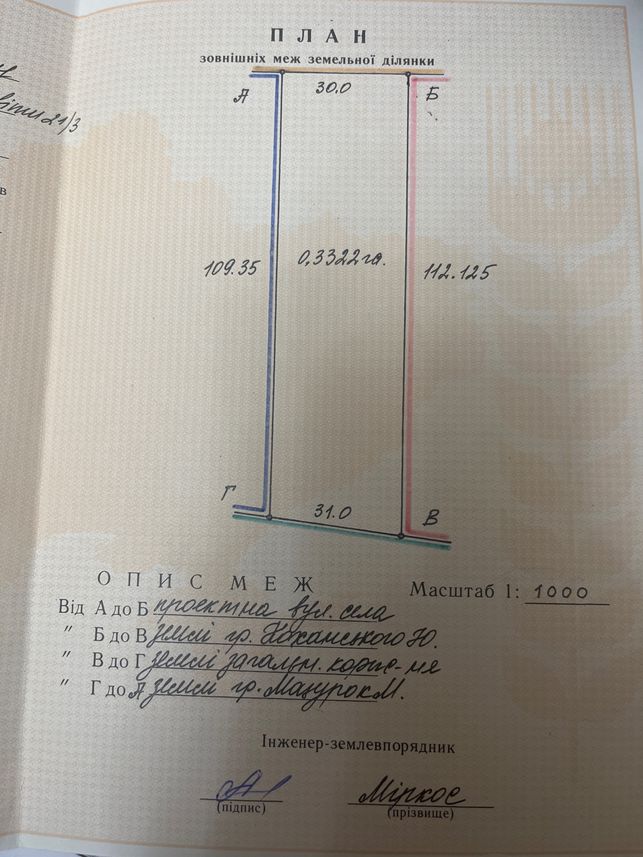 віти 21/3
в
ПЛАН
зовнішніх меж земельної ділянки
А 30.0 Б
109.35 0,3322га. 112.125
Г 31.0 В
ОПИС МЕЖ
Масштаб 1: 1000
Від А до Б проектна вул. села
" Б до В землі гр. Коханського Ю.
" В до Г землі загальн. корис-ня
" Г до А землі гр. Мазурок М.
Інженер-землевпорядник
(підпис) (прізвище)